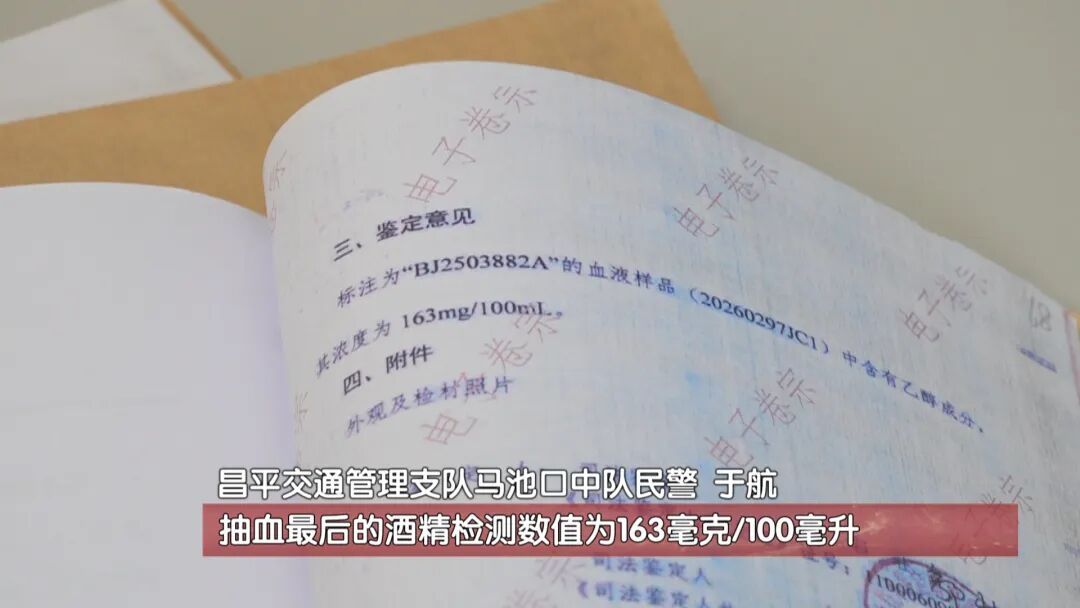 电子卷宗
电子卷宗
三、鉴定意见
标注为“BJ2503882A”的血液样品（20260297JC1）中含有乙醇成分，
其浓度为 163mg/100mL。
电子卷宗
68
四、附件
外观及检材照片
电子卷宗
电子卷宗
昌平交通管理支队马池口中队民警 于航
抽血最后的酒精检测数值为163毫克/100毫升
司法鉴定人
《司法鉴定人